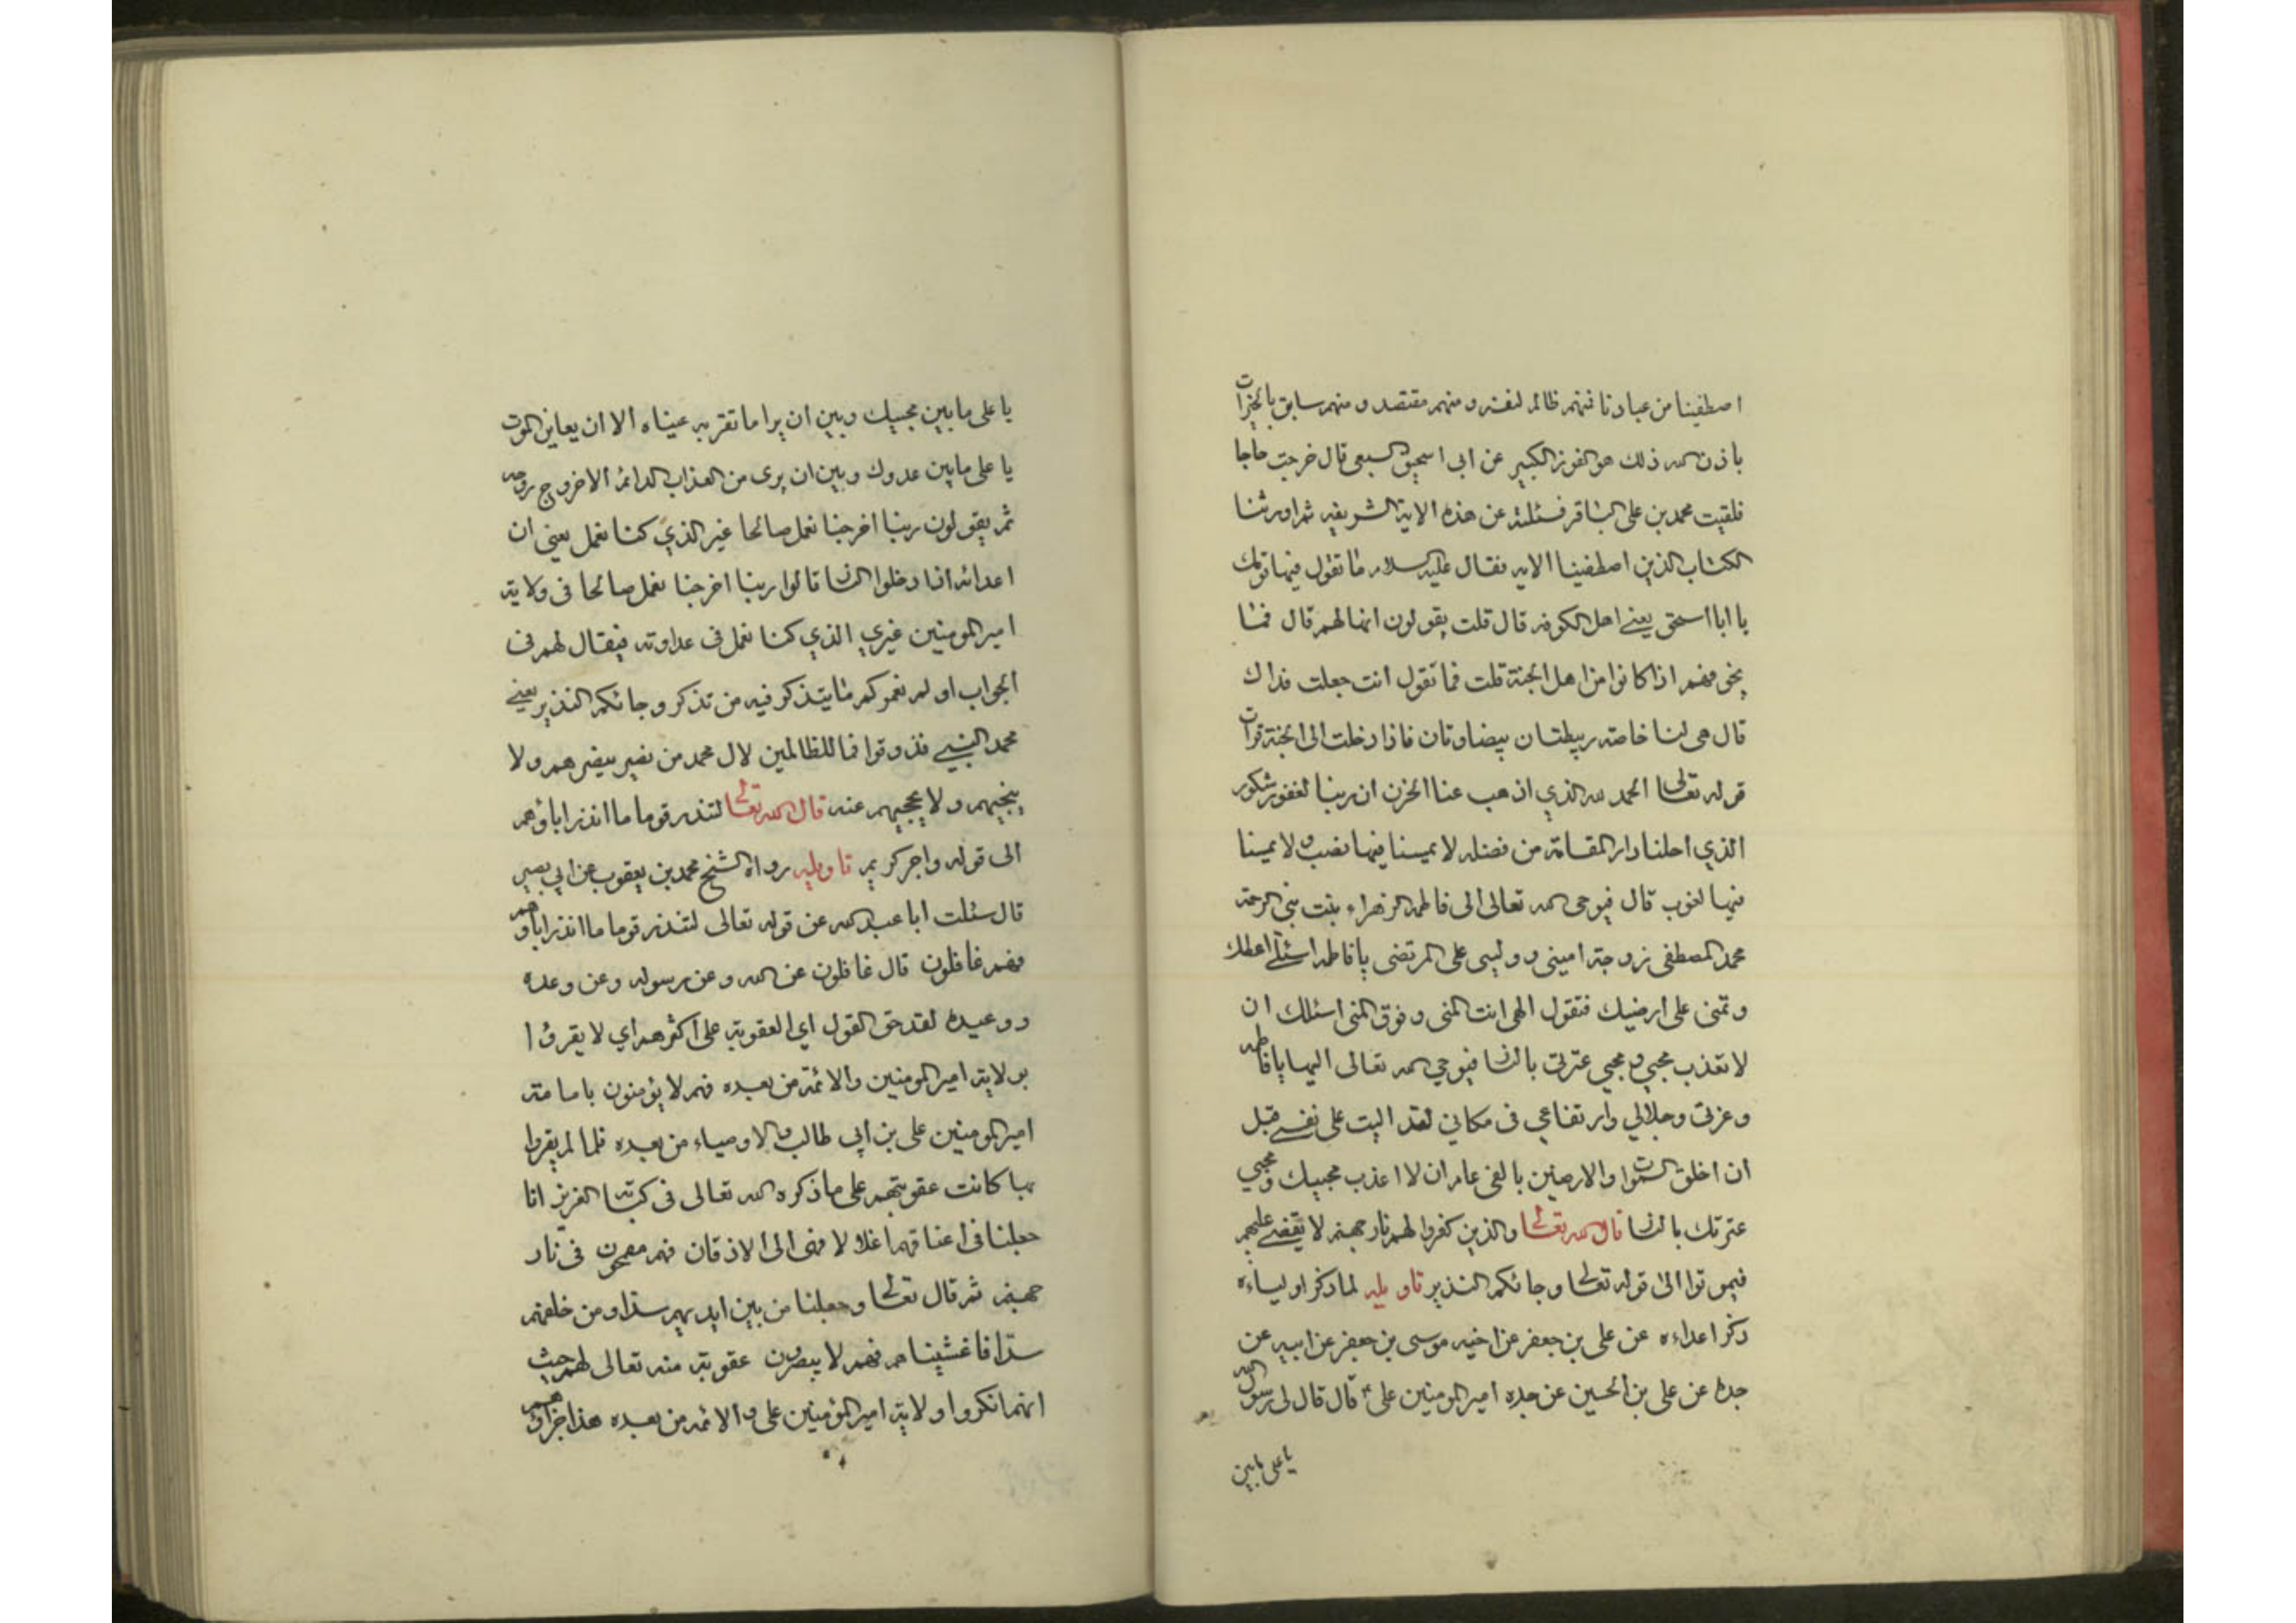 اصطفينا من عبادنا فمنهم ظالم لنفسه ومنهم مقتصد ومنهم سابق بالخيرات
باذن الله ذلك هو الفوز الكبير عن ابى اسحق السبعى قال خرجت حاجا
فلقيت محمد بن على الباقر فسئلته عن هذه الاية الشريفه ثم اورثنا
الكتاب الذين اصطفينا الايه فقال عليه السلام ما تقول فيها قومك
يا ابا اسحق يعنى اهل الكوفه قال قلت يقولون انها لهم قال فما
يخوفهم اذا كانوا من اهل الجنة قلت فما تقول انت جعلت فداك
قال هى لنا خاصة فاذا دخلت الى الجنة قرات
قوله تعالى الحمد لله الذي اذهب عنا الحزن ان ربنا لغفور شكور
الذي احلنا دار المقامة من فضله لا يمسنا فيها نصب ولا يمسنا
فيها لغوب قال فيوحى الله تعالى الى فاطمه الزهراء بنت نبي الرحمة
محمد المصطفى زوجة امينى وولیى على المرتضى يا فاطمه اسئلى اعطك
وتمنى على ارضيك فتقول الهى انت المنى وفوق المنى اسئلك ان
لا تعذب محبي ومحبي عترتى بالنار فيوحي الله تعالى اليها يا فاطمه
وعزتى وجلالي وارتفاعي فى مكاني لقد اليت على نفسے قبل
ان اخلق السموات والارضين بالفى عام ان لا اعذب محبيك ومحبي
عترتك بالنار قال الله تعالى والذين كفروا لهم نار جهنم لا يقضے عليهم
فيموتوا الى قوله تعالى وجائكم النذير تاويله لما ذكر اولياءه
ذكر اعداءه عن على بن جعفر عن اخيه موسى بن جعفر عن ابيه عن
جده عن على بن الحسين عن جده امير المومنين على ع قال قال لى رسول الله
يا على ما بين
يا على ما بين محبيك وبين ان يرا ما تقر به عيناه الا ان يعاين الموت
يا على ما بين عدوك وبين ان يرى من العذاب الدائم الا خروج روحه
ثم يقولون ربنا اخرجنا نعمل صالحا غير الذي كنا نعمل يعنى ان
اعدائه اذا دخلوا النار قالوا ربنا اخرجنا نعمل صالحا فى ولاية
امير المومنين غيرى الذي كنا نعمل فى عداوته فيقال لهم فى
الجواب او لم نعمركم ما يتذكر فيه من تذكر وجائكم النذير يعنے
محمد النبيے فذوقوا فما للظالمين لال محمد من نصير ينصرهم ولا
ينجيهم ولا يحجبهم عنه قال الله تعالى لتنذر قوما ما انذر اباؤهم
الى قوله واجر كريم تاويله رواه الشيخ محمد بن يعقوب عن ابي بصير
قال سئلت ابا عبد الله عن قوله تعالى لتنذر قوما ما انذر اباؤهم
فهم غافلون قال غافلون عن الله وعن رسوله وعن وعده
ووعيده لقد حق القول اي العقوبة على اكثرهم اي لا يقرؤا
بولاية امير المومنين والائمة من بعده فهم لا يؤمنون بامامة
امير المومنين على بن ابي طالب والاوصياء من بعده فلما لم يقروا
بها كانت عقوبتهم على ما ذكره الله تعالى فى كتابه العزيز انا
جعلنا فى اعناقهم اغلالا فهى الى الاذقان فهم مقمحون فى نار
جهنم ثم قال تعالى وجعلنا من بين ايديهم سدا ومن خلفهم
سدا فاغشيناهم فهم لا يبصرون عقوبة منه تعالى لهم حيث
انهم انكروا ولاية امير المؤمنين على والائمه من بعده هذا جزاؤهم